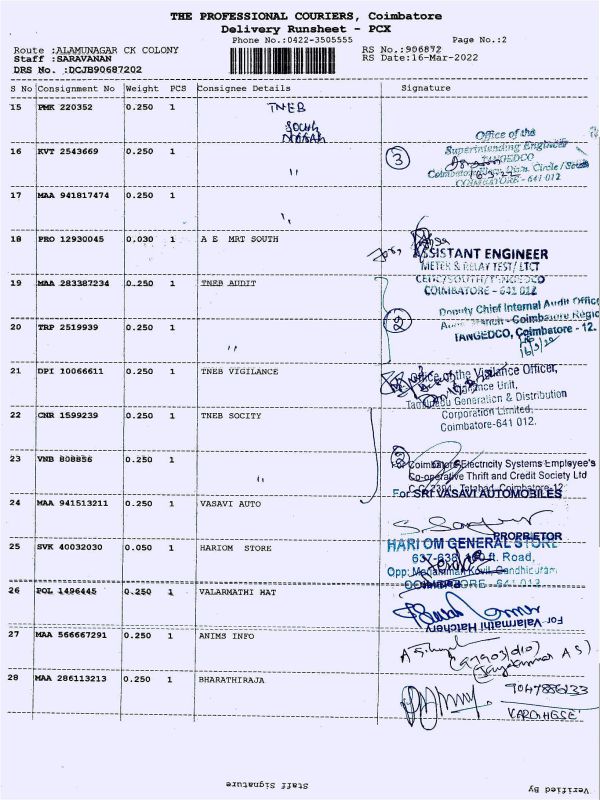 THE PROFESSIONAL COURIERS, Coimbatore
Delivery Runsheet - PCX
Phone No.:0422-3505555 Page No.:2
Route :ALAMUNAGAR CK COLONY RS No.:906872
Staff :SARAVANAN RS Date:16-Mar-2022
DRS No. :DCJB90687202
S No Consignment No Weight PCS Consignee Details Signature
15 PMK 220352 0.250 1 TNEB
16 KVT 2543669 0.250 1 " 3
Office of the
Superintending Engineer
TANGEDCO
COIMBATORE - 641 012
17 MAA 941817474 0.250 1 "
18 PRO 12930045 0.030 1 A E MRT SOUTH
For,
ASSISTANT ENGINEER
METER & RELAY TEST/ LTCT
COIMBATORE - 641 012
19 MAA 283387234 0.250 1 TNEB AUDIT
Deputy Chief Internal Audit Officer
20 TRP 2519939 0.250 1 " 2
TANGEDCO, Coimbatore - 12.
21 DPI 10066611 0.250 1 TNEB VIGILANCE
Office of the Vigilance Officer,
Vigilance Unit,
Tamilnadu Generation & Distribution
Corporation Limited,
Coimbatore-641 012.
22 CNR 1599239 0.250 1 TNEB SOCITY
23 VNB 808856 0.250 1 " 2
For Coimbatore Electricity Systems Employee's
Co-operative Thrift and Credit Society Ltd
24 MAA 941513211 0.250 1 VASAVI AUTO
For SRI VASAVI AUTOMOBILES
PROPRIETOR
25 SVK 40032030 0.050 1 HARIOM STORE
HARI OM GENERAL STORE
26 POL 1496445 0.250 1 VALARMATHI HAT
For Valarmathi Hatchery
27 MAA 566667291 0.250 1 ANIMS INFO
28 MAA 286113213 0.250 1 BHARATHIRAJA
Staff Signature Verified By